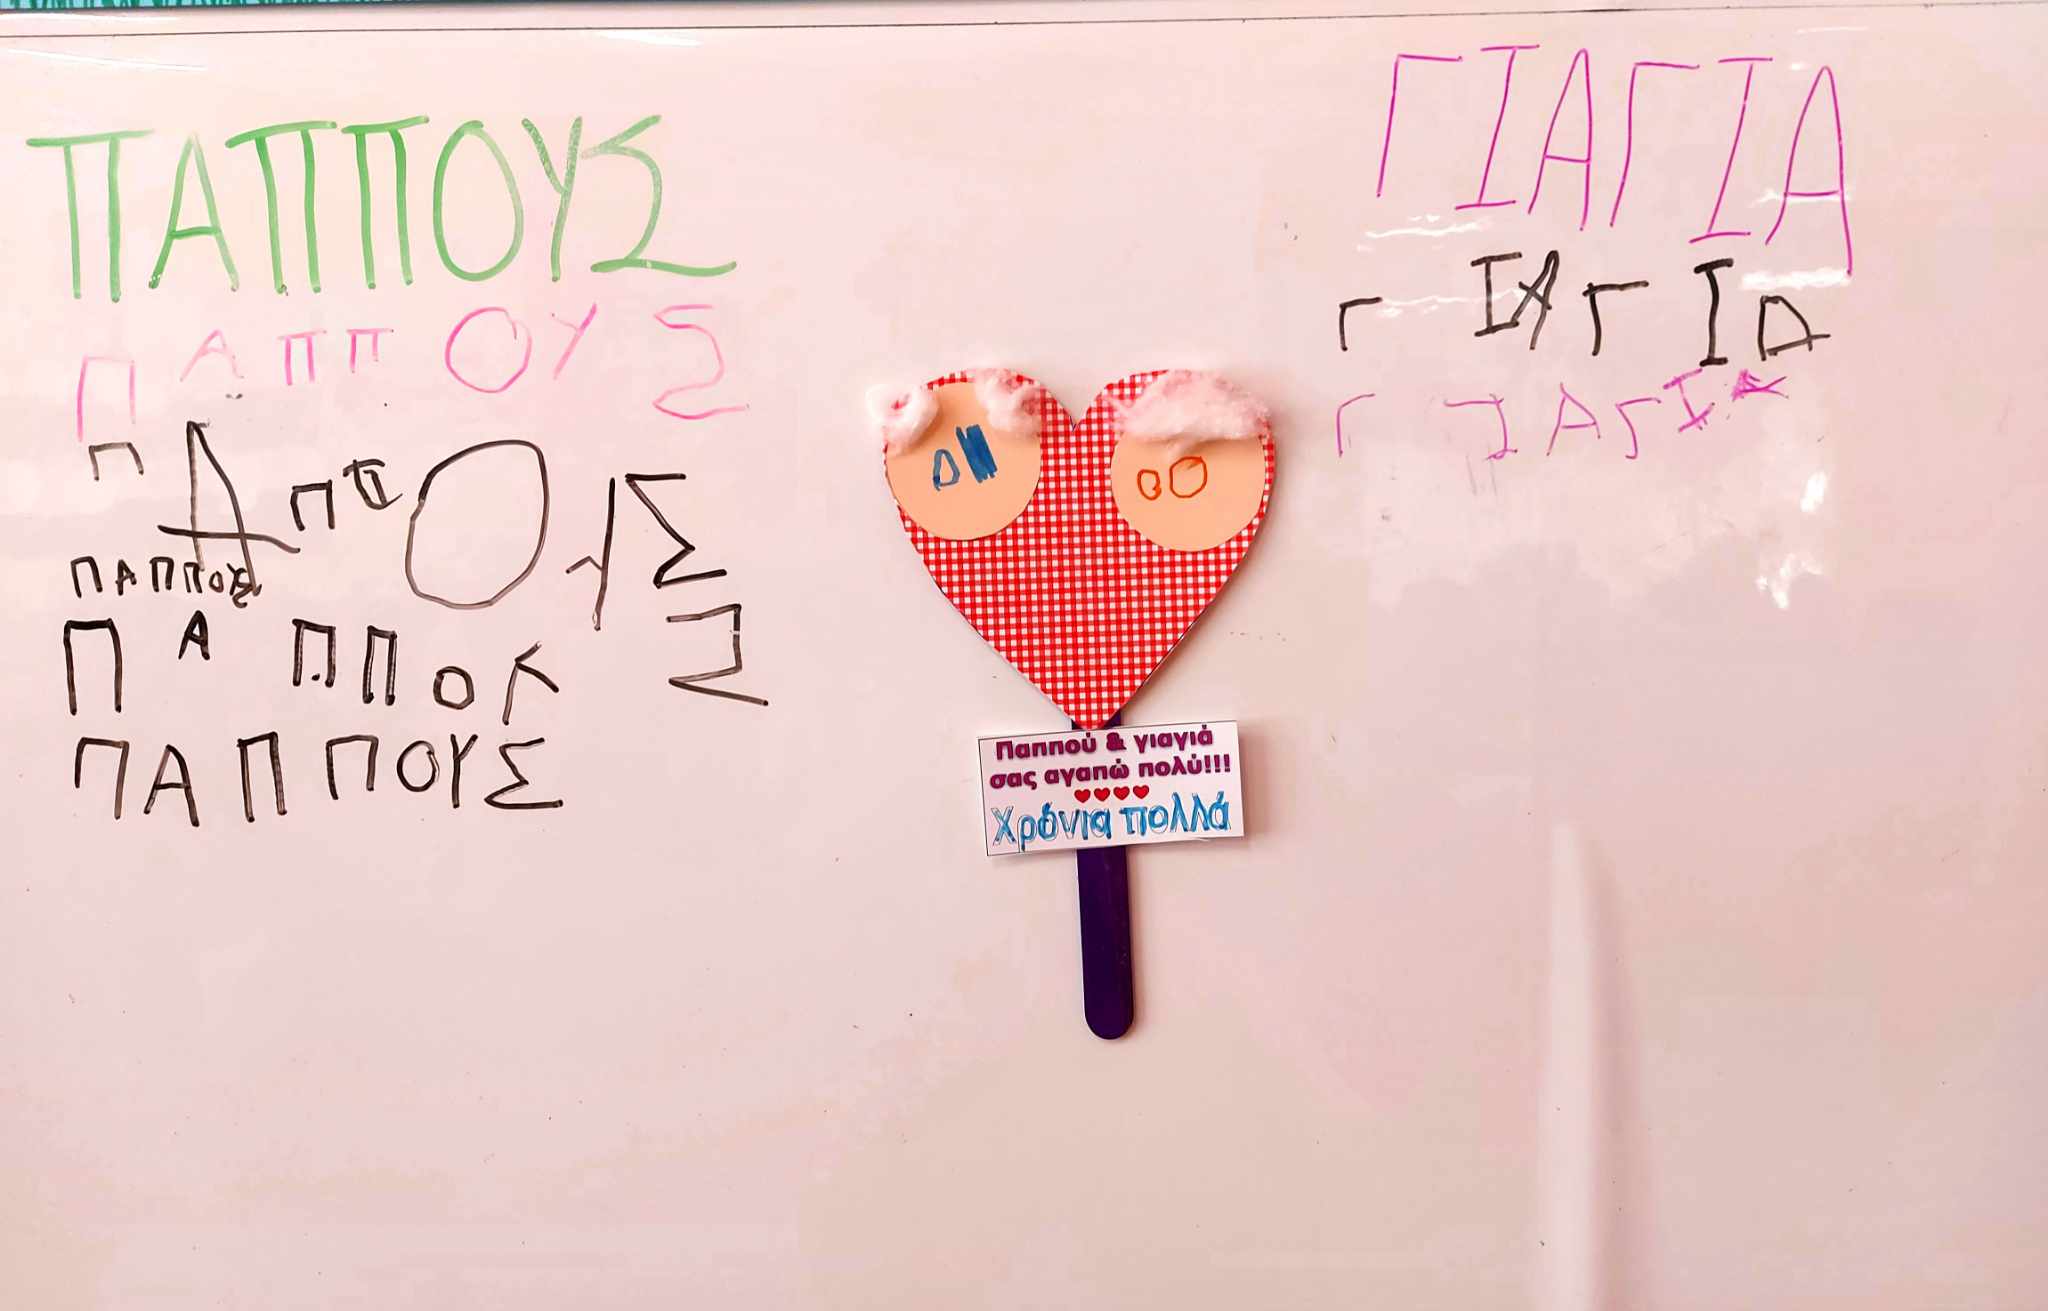 ΠΑΠΠΟΥΣ
ΠΑΠΠΟΥΣ
ΠΑΠΠΟΥΣ
ΠΑΠΠΟΥΣ
ΠΑΠΠΟΥΣ
ΠΑΠΠΟΥΣ
Παππού & γιαγιά
σας αγαπώ πολύ!!!
Χρόνια πολλά
ΓΙΑΓΙΑ
ΓΙΑΓΙΑ
ΓΙΑΓΙΑ